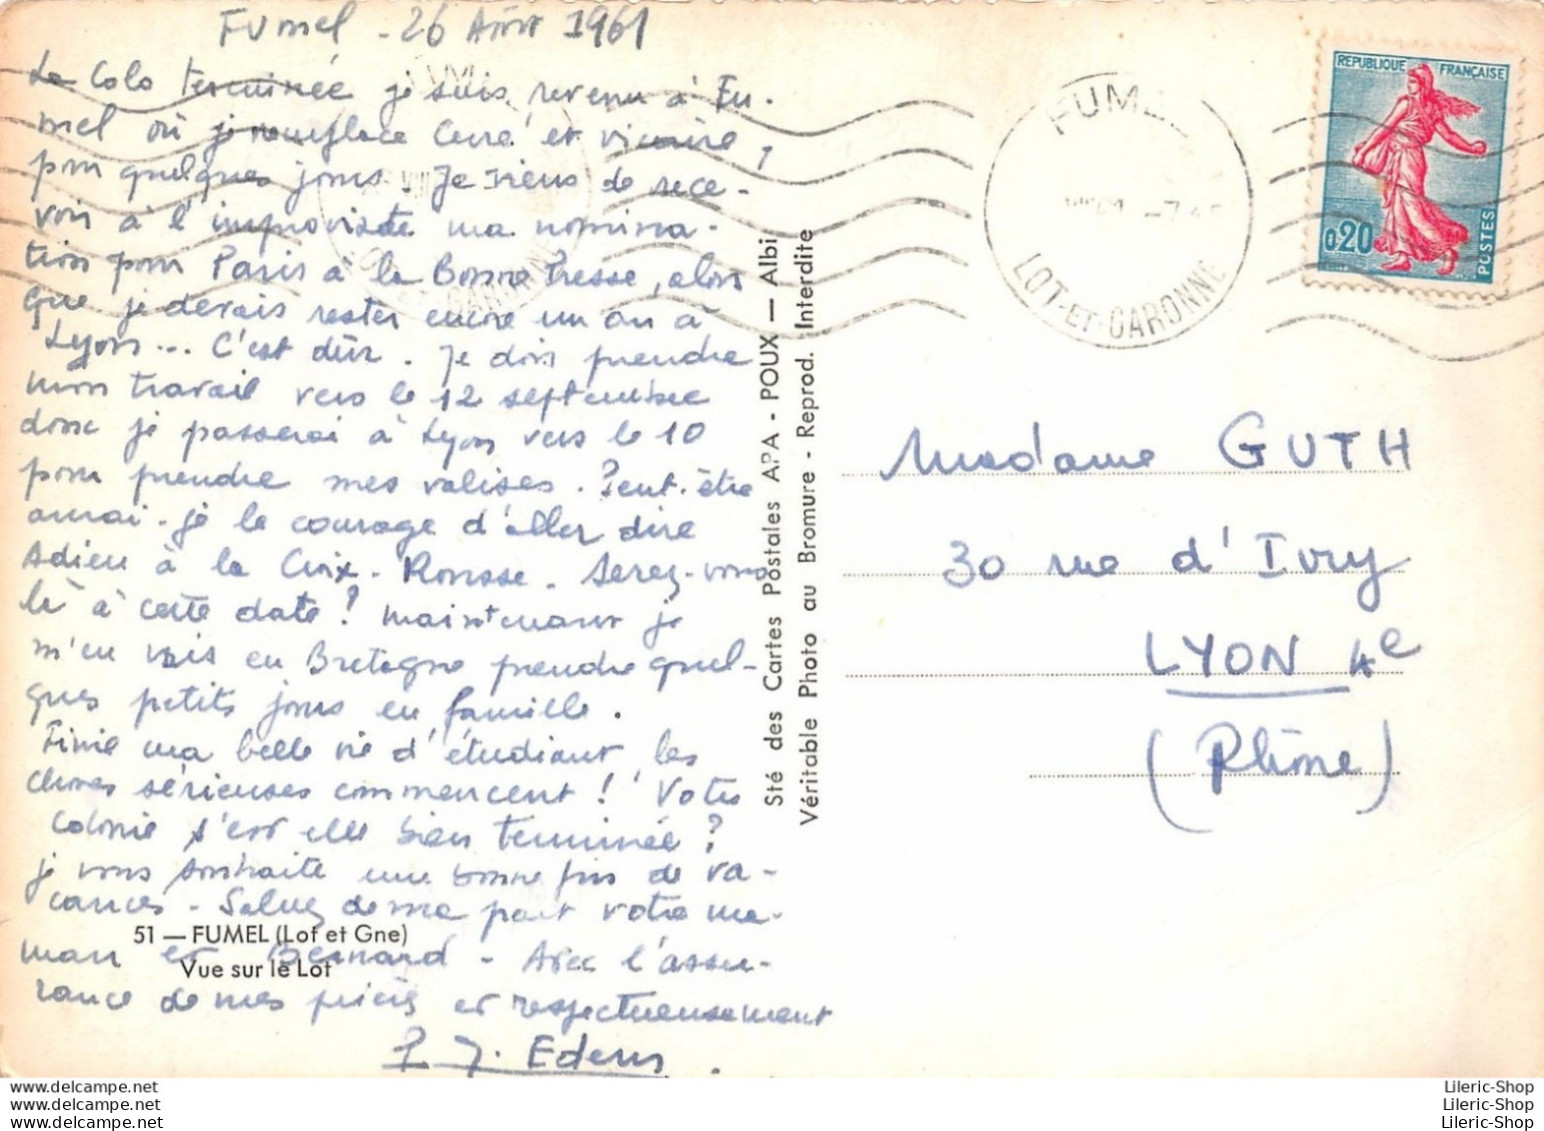 Fumel - 26 Août 1961
La Colo terminée je suis revenu à Fu-
mel où je remplace Curé et vicaire,
pour quelques jours. Je viens de rece-
voir à l'improviste ma nomina-
tion pour Paris à la Bonne Presse, alors
que je devais rester encore un an à
Lyon... C'est dur. Je dois prendre
mon travail vers le 12 septembre
donc je passerai à Lyon vers le 10
pour prendre mes valises. Peut-être
aurai-je le courage d'aller dire
Adieu à la Croix-Rousse. Serez-vous
là à cette date? Maintenant je
m'en vais en Bretagne prendre quel-
ques petits jours en famille.
Finie ma belle vie d'étudiant, les
choses sérieuses commencent! Votre
Colonie s'est elle bien terminée?
je vous souhaite une bonne fin de va-
cances - Saluez de ma part votre ma-
man et Bernard - Avec l'assu-
rance de mes prières et respectueusement
P. J. Edern.
51 — FUMEL (Lot et Gne)
Vue sur le Lot
Sté des Cartes Postales APA - POUX — Albi
Véritable Photo au Bromure - Reprod. Interdite
FUMEL
LOT-ET-GARONNE
FUMEL
LOT-ET-GARONNE
REPUBLIQUE FRANÇAISE
0,20
POSTES
Madame GUTH
30 rue d'Ivry
LYON 4e
(Rhône)
Lileric-Shop
Lileric-Shop
Lileric-Shop
delcampe.net
delcampe.net
delcampe.net